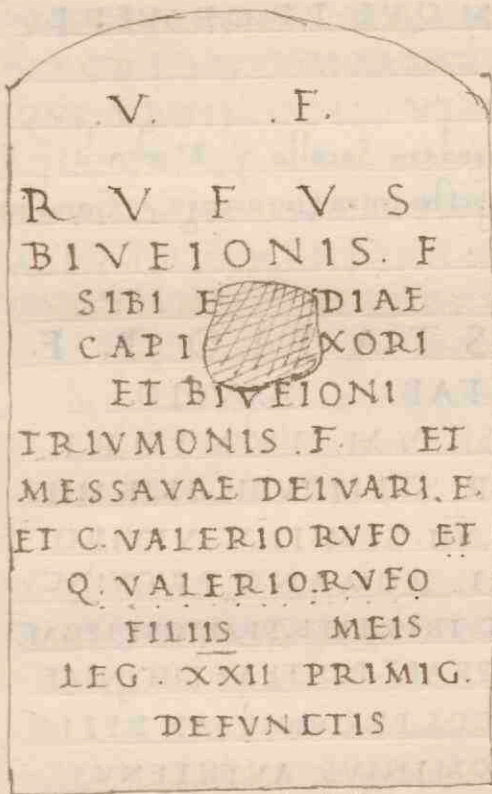 .V. .F.
RVFVS
BIVEIONIS. F
SIBI E DIAE
CAPI XORI
ET BIVEIONI
TRIVMONIS .F. ET
MESSAVAE DEIVARI. F.
ET C. VALERIO RVFO ET
Q. VALERIO. RVFO
FILIIS MEIS
LEG. XXII PRIMIG.
DEFVNCTIS